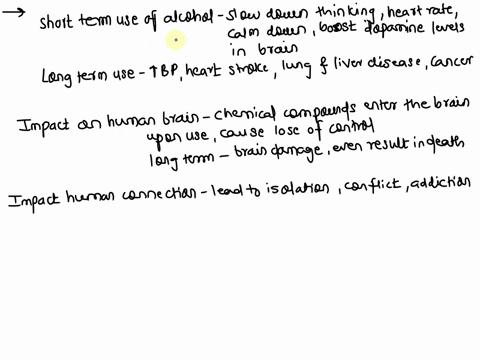 → Short term use of alcohol - slow down thinking, heart rate,
calm down, boost dopamine levels
in brain
Long term use - ↑BP, heart stroke, lung & liver disease, cancer
Impact on human brain - chemical compounds enter the brain
upon use, cause lose of control
long term - brain damage, even result in death
Impact human connection - lead to isolation, conflict, addiction